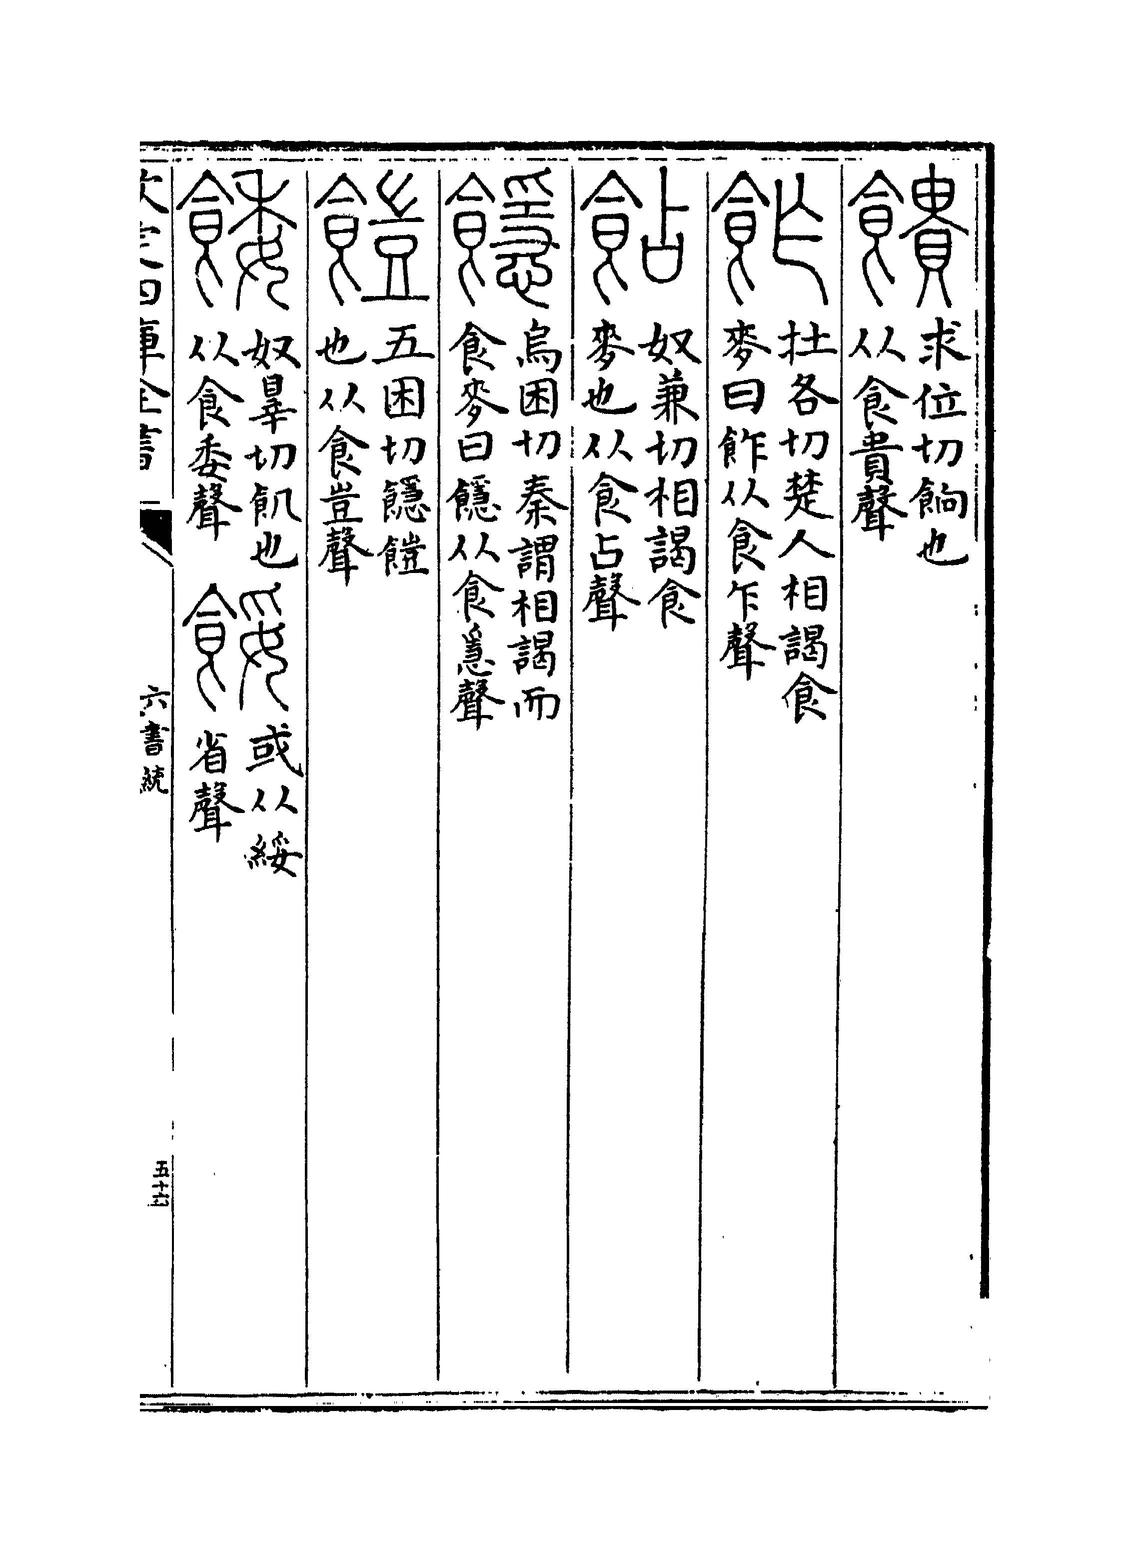 饋求位切餉也
从食貴聲
飵拄各切楚人相謁食
麥曰飵从食乍聲
䬯奴兼切相謁食
麥也从食占聲
䭡烏困切秦謂相謁而
食麥曰䭡从食㥯聲
䭓五困切䭡䭓
也从食豈聲
餧奴辠切飢也
从食委聲
餒或从綏
省聲
欽定四庫全書
六書統
五十六